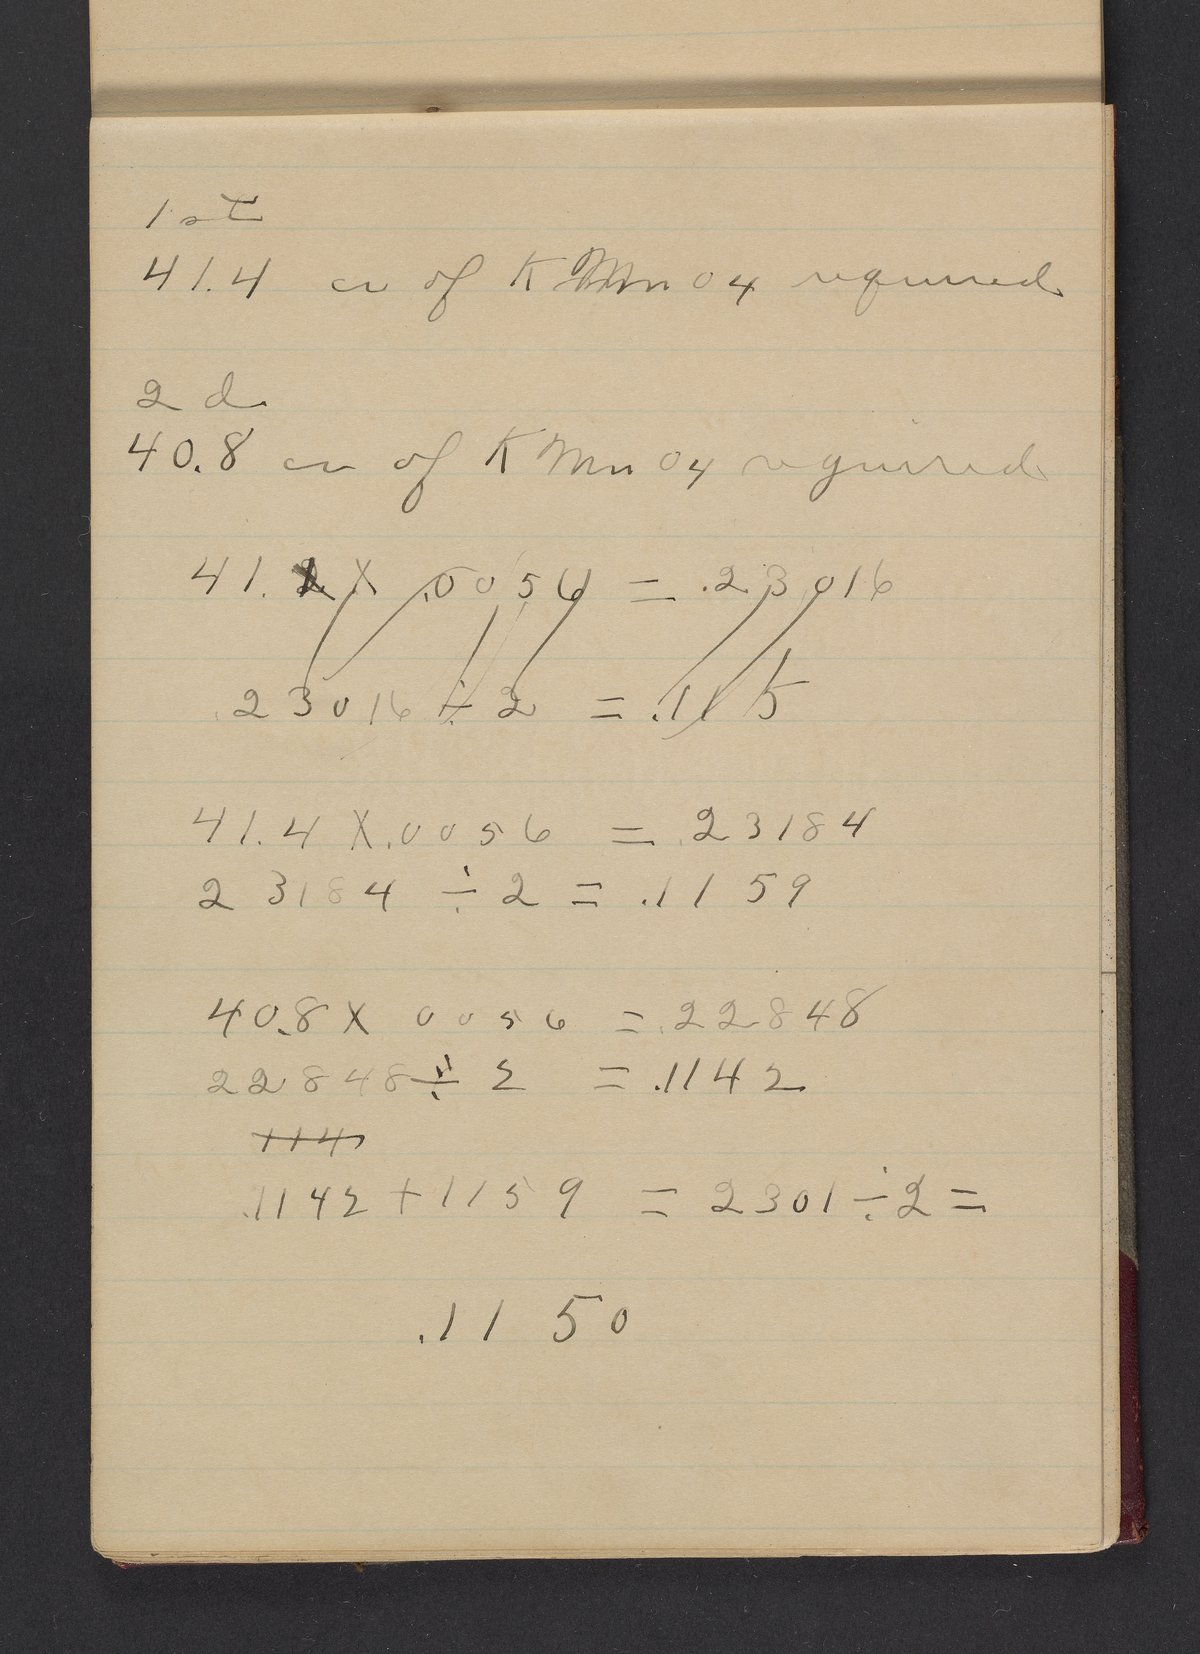 1st
41.4 cc of KMnO4 required
2d.
40.8 cc of KMnO4 required
41. X .0056 = .23016
.23016 ÷ 2 = .115
41.4 X .0056 = .23184
23184 ÷ 2 = .1159
40.8 X 0056 = .22848
22848 ÷ 2 = .1142
114
.1142 + 1159 = 2301 ÷ 2 =
.1150